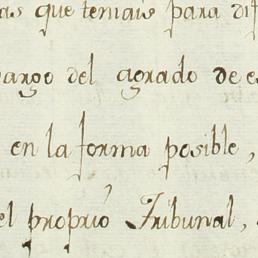 as que temais para dif
argo del agrado de es
en la forma posible,
el proprio Tribunal,